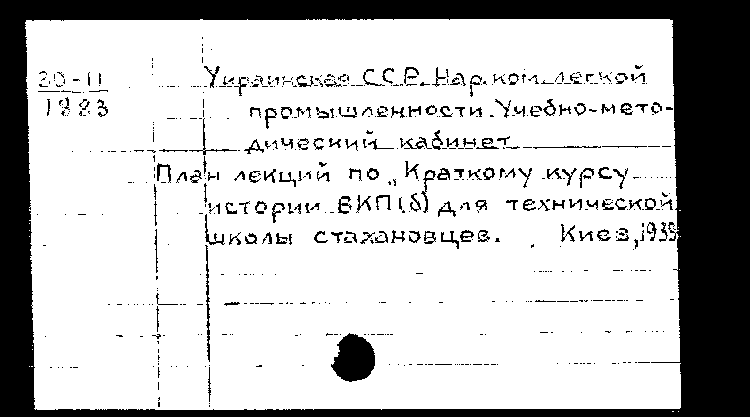 20-11
1883
Украинская ССР. Нар.ком.легкой
промышленности. Учебно-мето-
дический кабинет
План лекций по „Краткому курсу
истории ВКП(б) для технической
школы стахановцев. Киев, 1939